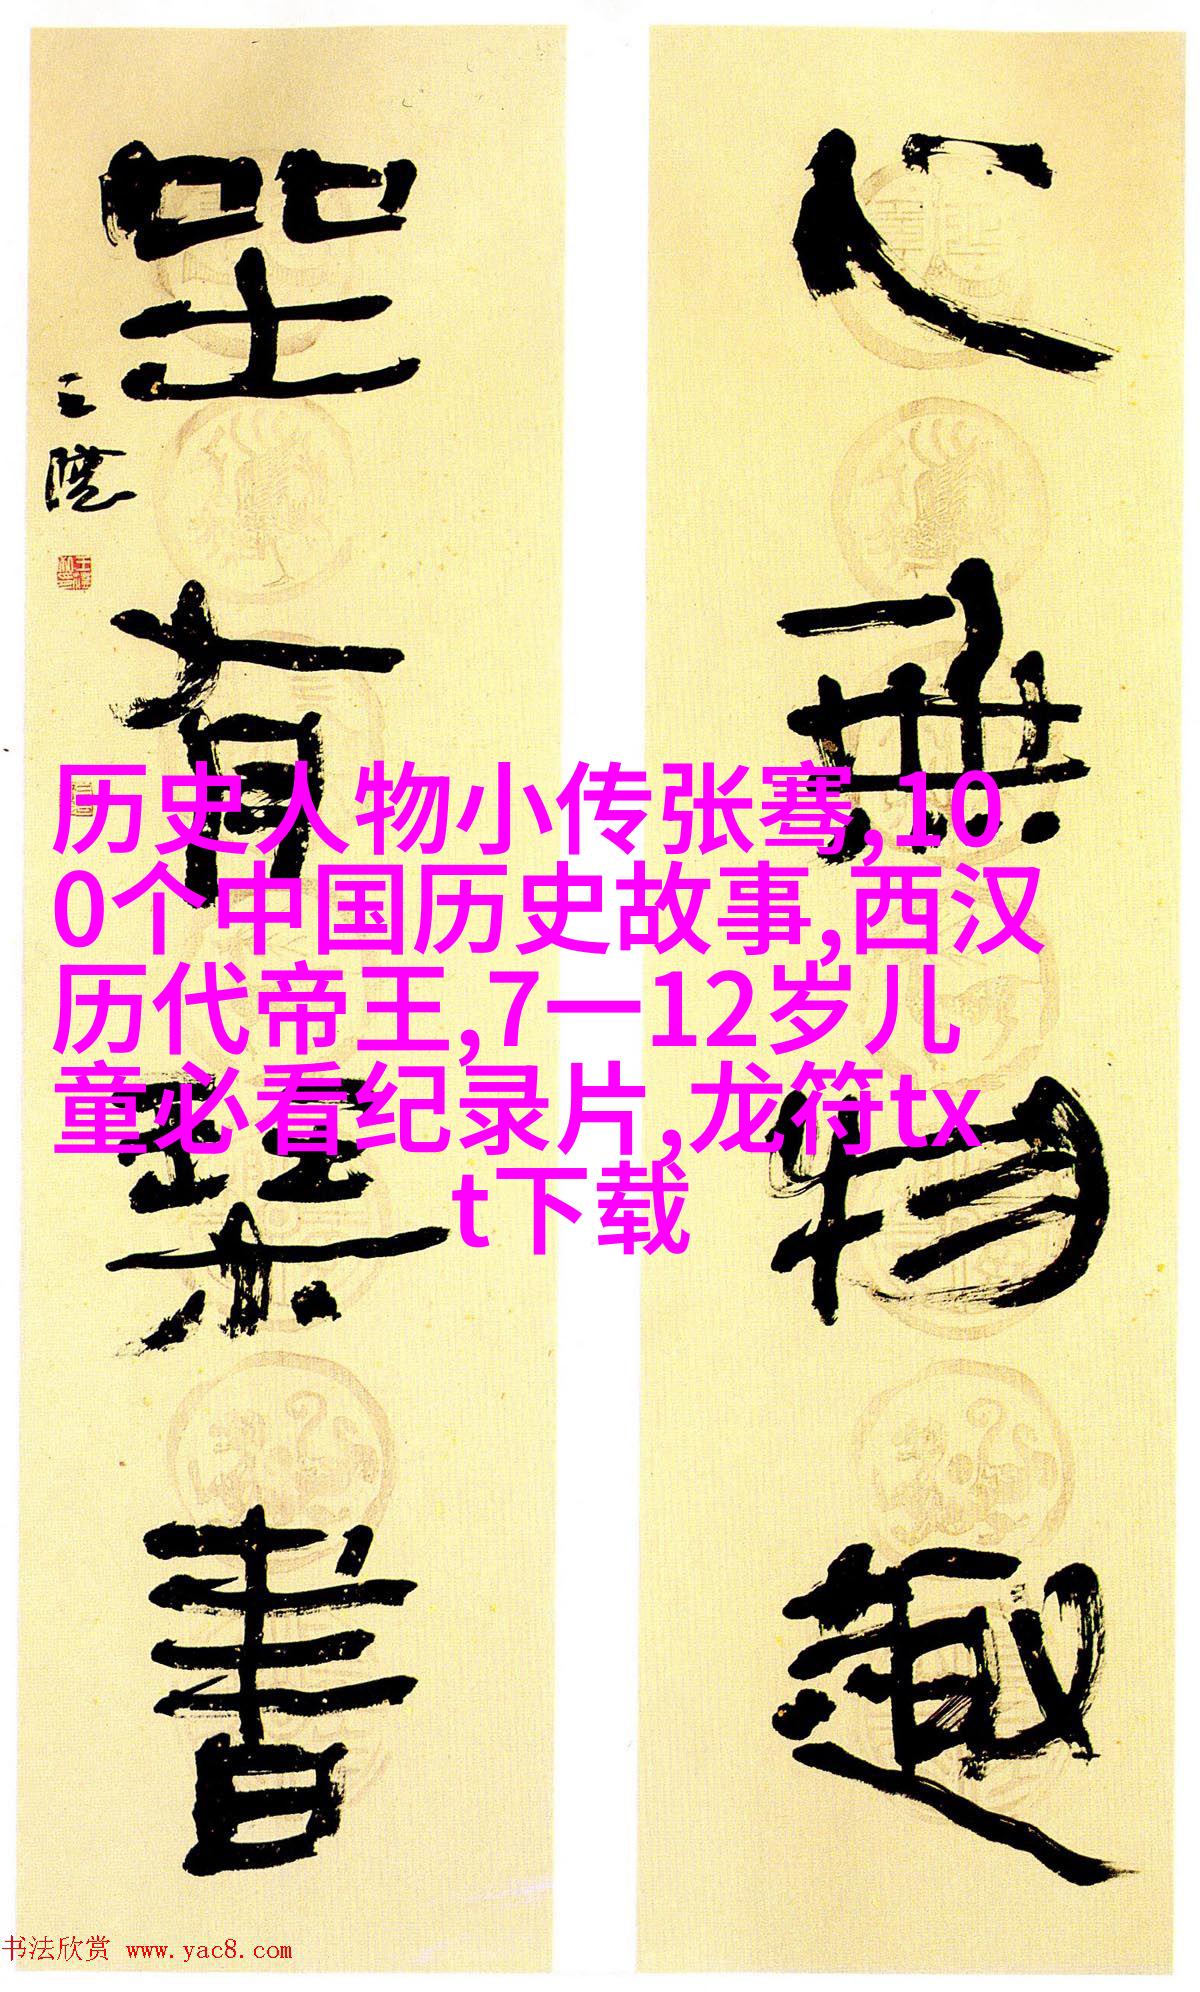 心無物趣
坐有琴書
历史人物小传张骞,10
0个中国历史故事,西汉
历代帝王,7一12岁儿
童必看纪录片,龙符tx
t下载
书法欣赏 www.yac8.com